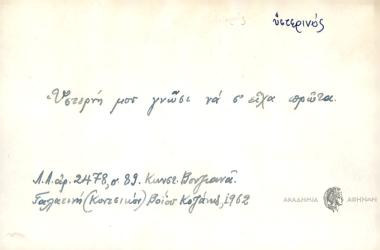 ὑστερινός
Ὑστερνή μου γνῶσι νά σ' εἶχα πρῶτα.
Λ.Λ. ἀρ. 2478, σ. 89. Κωνστ.
Γαλατινή (Κοντσικό) Βοΐου Κοζάνης, 1962
ΑΚΑΔΗΜΙΑ ΑΘΗΝΩΝ